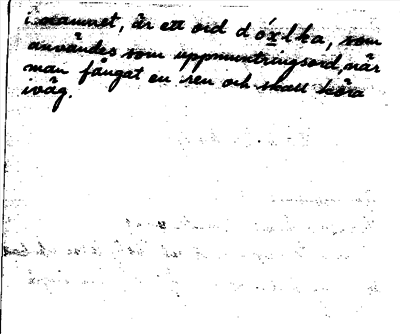 i namnet, är ett ord dóx̱lka, som
användes som uppmuntringsord, när
man fångat en ren och skall köra
iväg.